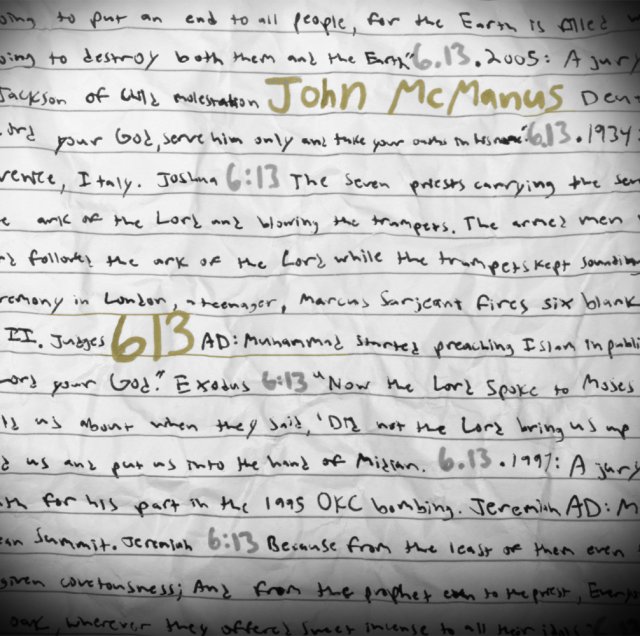 oing to put an end to all people, for the Earth is filled w
oing to destroy both them and the Earth" 6.13.2005: A jury
Jackson of child molestation John McManus Deut
Lord your God, serve him only and take your oaths in his name." 6.13.1934:
venice, Italy. Joshua 6:13 The seven priests carrying the sev
e ark of the Lord and blowing the trumpets. The armed men
rd followed the ark of the Lord while the trumpets kept sounding
remony in London, a teenager, Marcus Sarjeant fires six blank
II. Judges 613 AD: Muhammad started preaching Islam in publi
Lord your God." Exodus 6:13 "Now the Lord spoke to Moses
ld us about when they said, 'Did not the Lord bring us up
d us and put us into the hand of Midian. 6.13.1997: A jury
th for his part in the 1995 OKC bombing. Jeremiah AD: M
ean Summit. Jeremiah 6:13 Because from the least of them even
given covetousness; And from the prophet even to the priest, Everyo
oak, wherever they offered sweet incense to all their idols